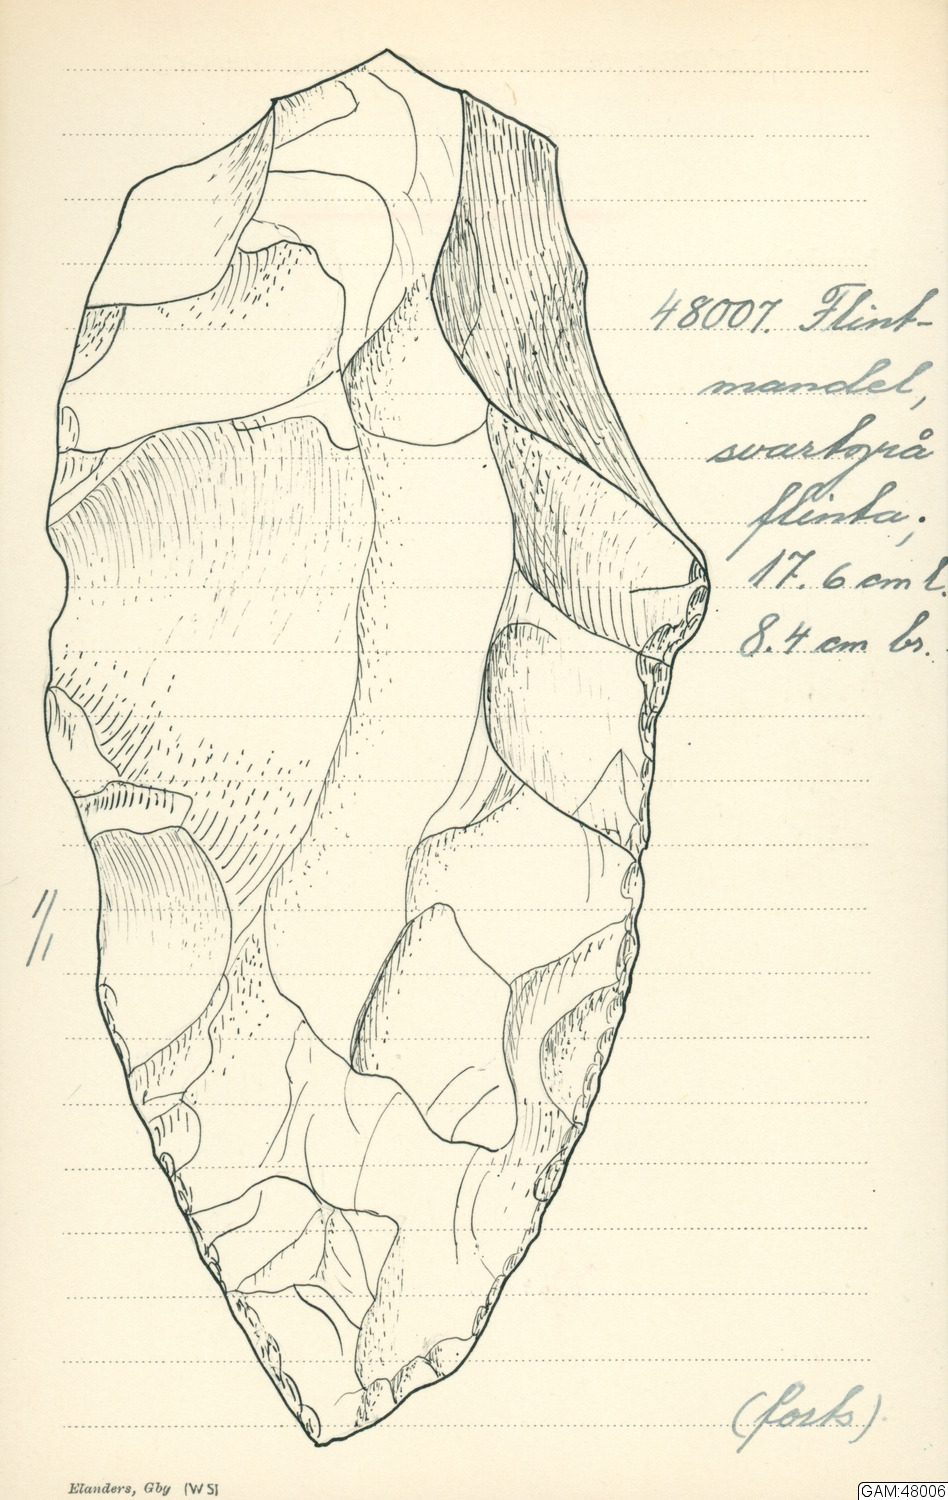 48007. Flint-
mandel,
svartgrå
flinta;
17.6 cm l.
8.4 cm br.
1/1
(forts)
Elanders, Gbg (WS)
GAM:48006